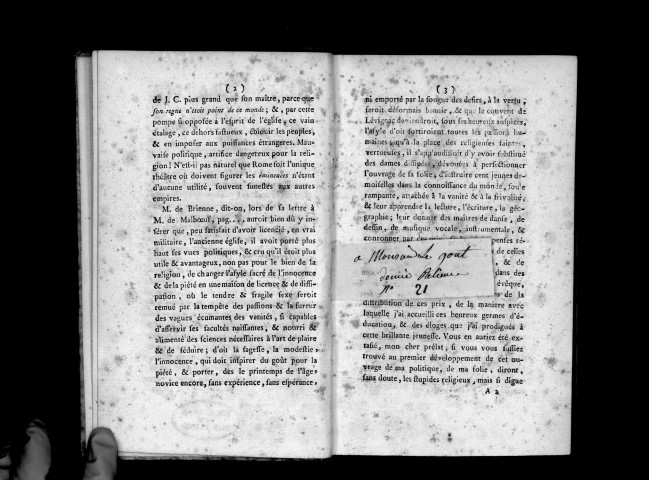 ( 2 )
de J. C. plus grand que son maître, parce que
son regne n'étoit point de ce monde; &, par cette
pompe si opposée à l'esprit de l'église, ce vain
étalage, ce dehors fastueux, éblouir les peuples,
& en imposer aux puissances étrangeres. Mau-
vaise politique, artifice dangereux pour la reli-
gion! N'est-il pas naturel que Rome soit l'unique
théâtre où doivent figurer les éminences n'étant
d'aucune utilité, souvent funestes aux autres
empires.
M. de Brienne, dit-on, lors de sa lettre à
M. de Malbœuf, pag...., auroit bien dû y in-
sérer que, peu satisfait d'avoir licencié, en vrai
militaire, l'ancienne église, il avoit porté plus
haut ses vues politiques, & cru qu'il étoit plus
utile & avantageux, non pas pour le bien de sa
religion, de changer l'asyle sacré de l'innocence
& de la piété en une maison de licence & de dissi-
pation, où le tendre & fragile sexe seroit
remué par la tempête des passions & la fureur
des vagues écumantes des vanités, si capables
d'asservir ses facultés naissantes, & nourri &
alimenté des sciences nécessaires à l'art de plaire
& de séduire; d'où la sagesse, la modestie,
l'innocence, qui doit inspirer du goût pour la
piété, & porter, dès le printemps de l'âge,
novice encore, sans expérience, sans espérance,
( 3 )
ni emporté par la fougue des desirs, à la vertu,
seroit désormais bannie, & que le couvent de
Lévignac deviendroit, sous ses heureux auspices,
l'asyle d'où sortiroient toutes les passions hu-
maines; qu'à la place des religieuses saintes,
vertueuses, il s'applaudissoit d'y avoir substitué
des dames dissipées, dévouées à perfectionner
l'ouvrage de sa folie, d'instruire cent jeunes de-
moiselles dans la connoissance du monde, foule
rampante, attachée à la vanité & à la frivolité,
& leur apprendre la lecture, l'écriture, la géo-
graphie; leur donner des maîtres de danse, de
dessin, de musique vocale, instrumentale, &
couronner par
penses ré-
de celles
, & de
dans des
évêque,
de la
a Monsard Le gout
Palème
n° 21
distribution de ces prix, de la maniere avec
laquelle j'ai accueilli ces heureux germes d'é-
ducation, & des éloges que j'ai prodigués à
cette brillante jeunesse. Vous en auriez été ex-
tasié, mon cher prélat, si vous vous fussiez
trouvé au premier développement de cet ou-
vrage de ma politique, de ma folie, diront,
sans doute, les stupides religieux, mais si digne
A 2